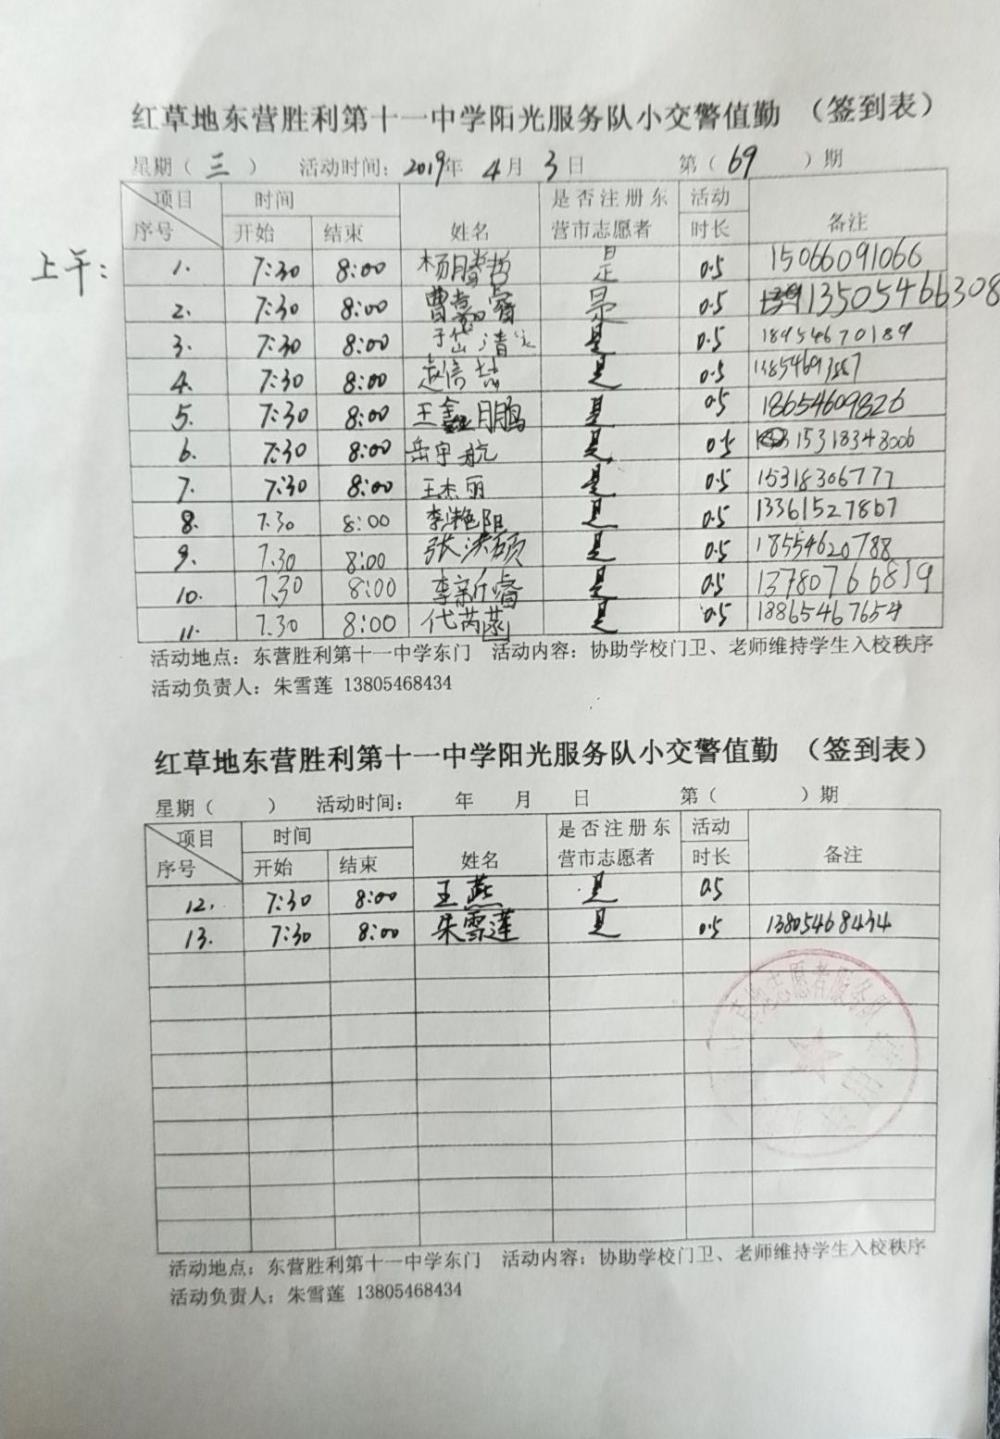 红草地东营胜利第十一中学阳光服务队小交警值勤 （签到表）
星期（ 三 ） 活动时间：2019年 4月 3日 第（ 69 ）期
项目 时间 是否注册东 活动
序号 开始 结束 姓名 营市志愿者 时长 备注
上午：
1. 7:30 8:00 杨腾哲 是 0.5 15066091066
2. 7:30 8:00 曹 是 0.5 13505466308
3. 7:30 8:00 于岱清 是 0.5 18954670189
4. 7:30 8:00 赵信喆 是 0.5
5. 7:30 8:00 王鑫鹏 是 0.5 18654609826
6. 7:30 8:00 岳宇航 是 0.5 15318343006
7. 7:30 8:00 王杰丽 是 0.5 15318306777
8. 7.30 8:00 李滟阳 是 0.5 13361527867
9. 7.30 8:00 张洪硕 是 0.5 18554620788
10. 7.30 8:00 李新睿 是 0.5 13780766819
11. 7.30 8:00 代芮菡 是 0.5 18865467654
活动地点：东营胜利第十一中学东门 活动内容：协助学校门卫、老师维持学生入校秩序
活动负责人：朱雪莲 13805468434
红草地东营胜利第十一中学阳光服务队小交警值勤 （签到表）
星期（ ） 活动时间： 年 月 日 第（ ）期
项目 时间 是否注册东 活动
序号 开始 结束 姓名 营市志愿者 时长 备注
12. 7:30 8:00 王燕 是 0.5
13. 7:30 8:00 朱雪莲 是 0.5 13805468434
志愿者服务队
活动地点：东营胜利第十一中学东门 活动内容：协助学校门卫、老师维持学生入校秩序
活动负责人：朱雪莲 13805468434